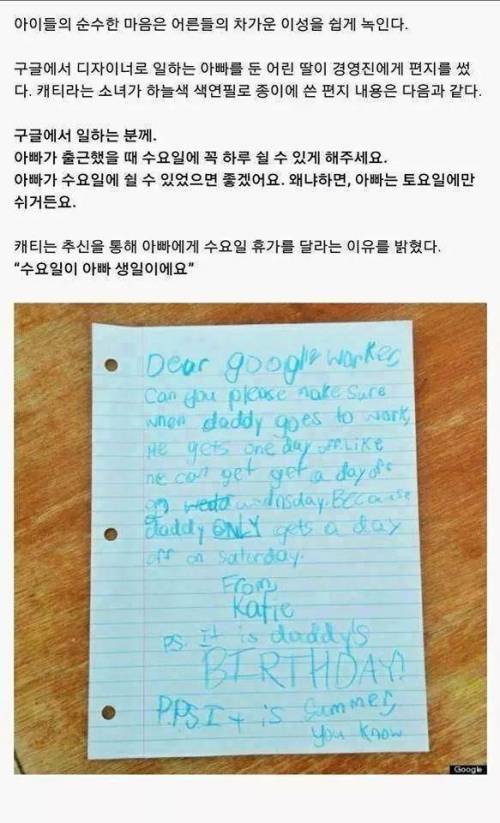 아이들의 순수한 마음은 어른들의 차가운 이성을 쉽게 녹인다.
구글에서 디자이너로 일하는 아빠를 둔 어린 딸이 경영진에게 편지를 썼
다. 캐티라는 소녀가 하늘색 색연필로 종이에 쓴 편지 내용은 다음과 같다.
구글에서 일하는 분께.
아빠가 출근했을 때 수요일에 꼭 하루 쉴 수 있게 해주세요.
아빠가 수요일에 쉴 수 있었으면 좋겠어요. 왜냐하면, 아빠는 토요일에만
쉬거든요.
캐티는 추신을 통해 아빠에게 수요일 휴가를 달라는 이유를 밝혔다.
“수요일이 아빠 생일이에요”
Dear google worker
Can you please make sure
when daddy goes to work,
He gets one day off. Like
he can get get a day off
on wednsday. Because
daddy ONLY gets a day
off on saturday.
From,
Katie
P.S. It is daddy's
BIRTHDAY!
P.P.S. It is summer,
you know
Google